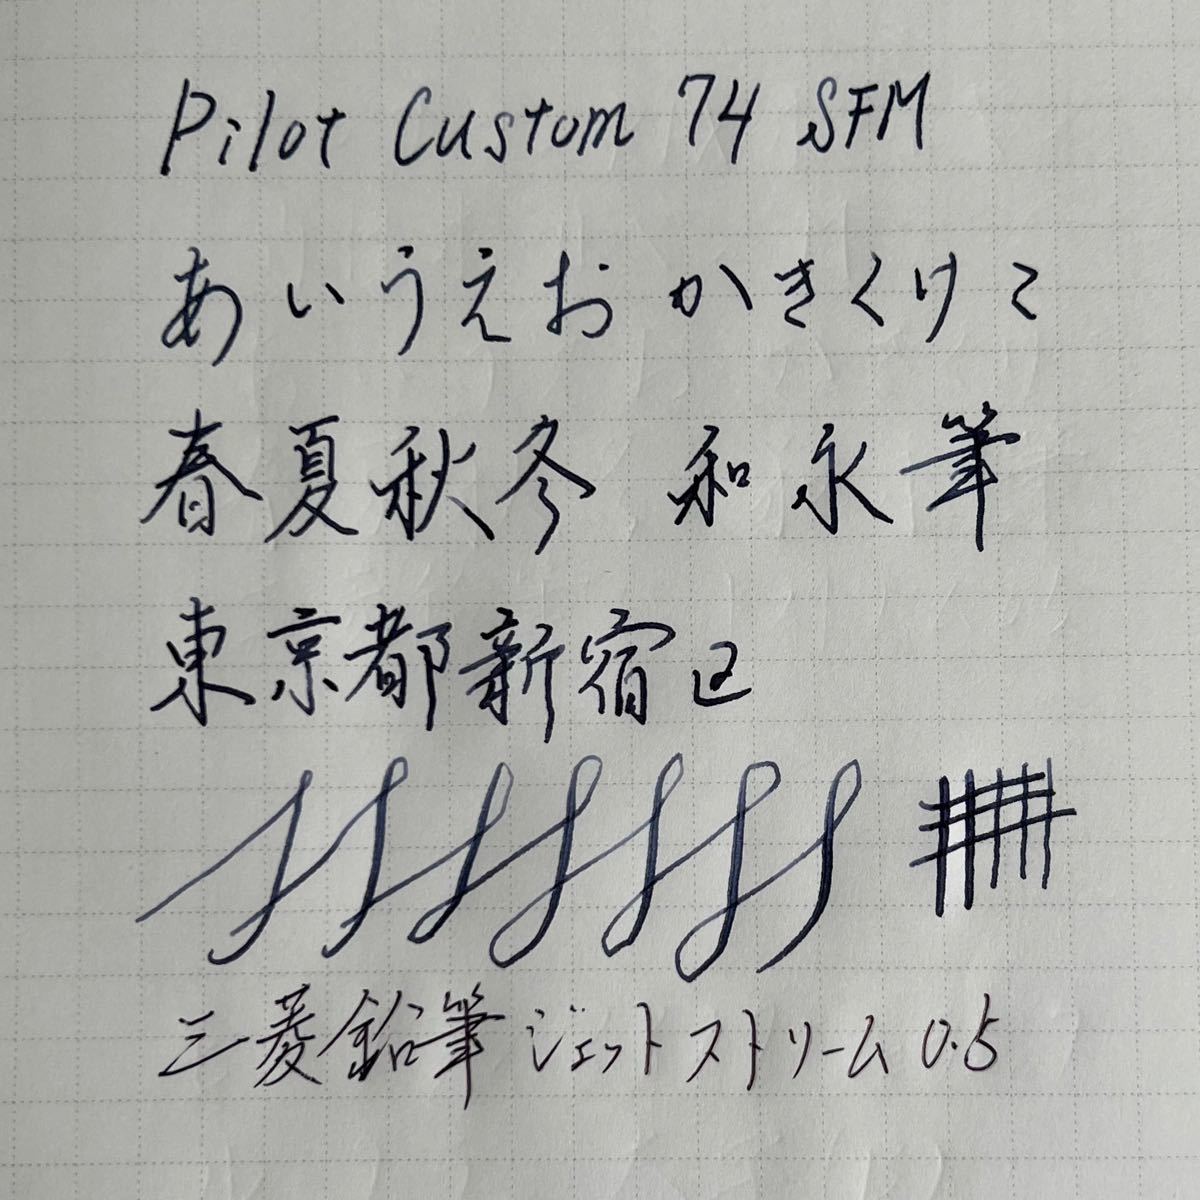 Pilot Custom 74 SFM
あいうえお かきくけこ
春夏秋冬 和永筆
東京都新宿区
三菱鉛筆ジェットストリーム 0.5